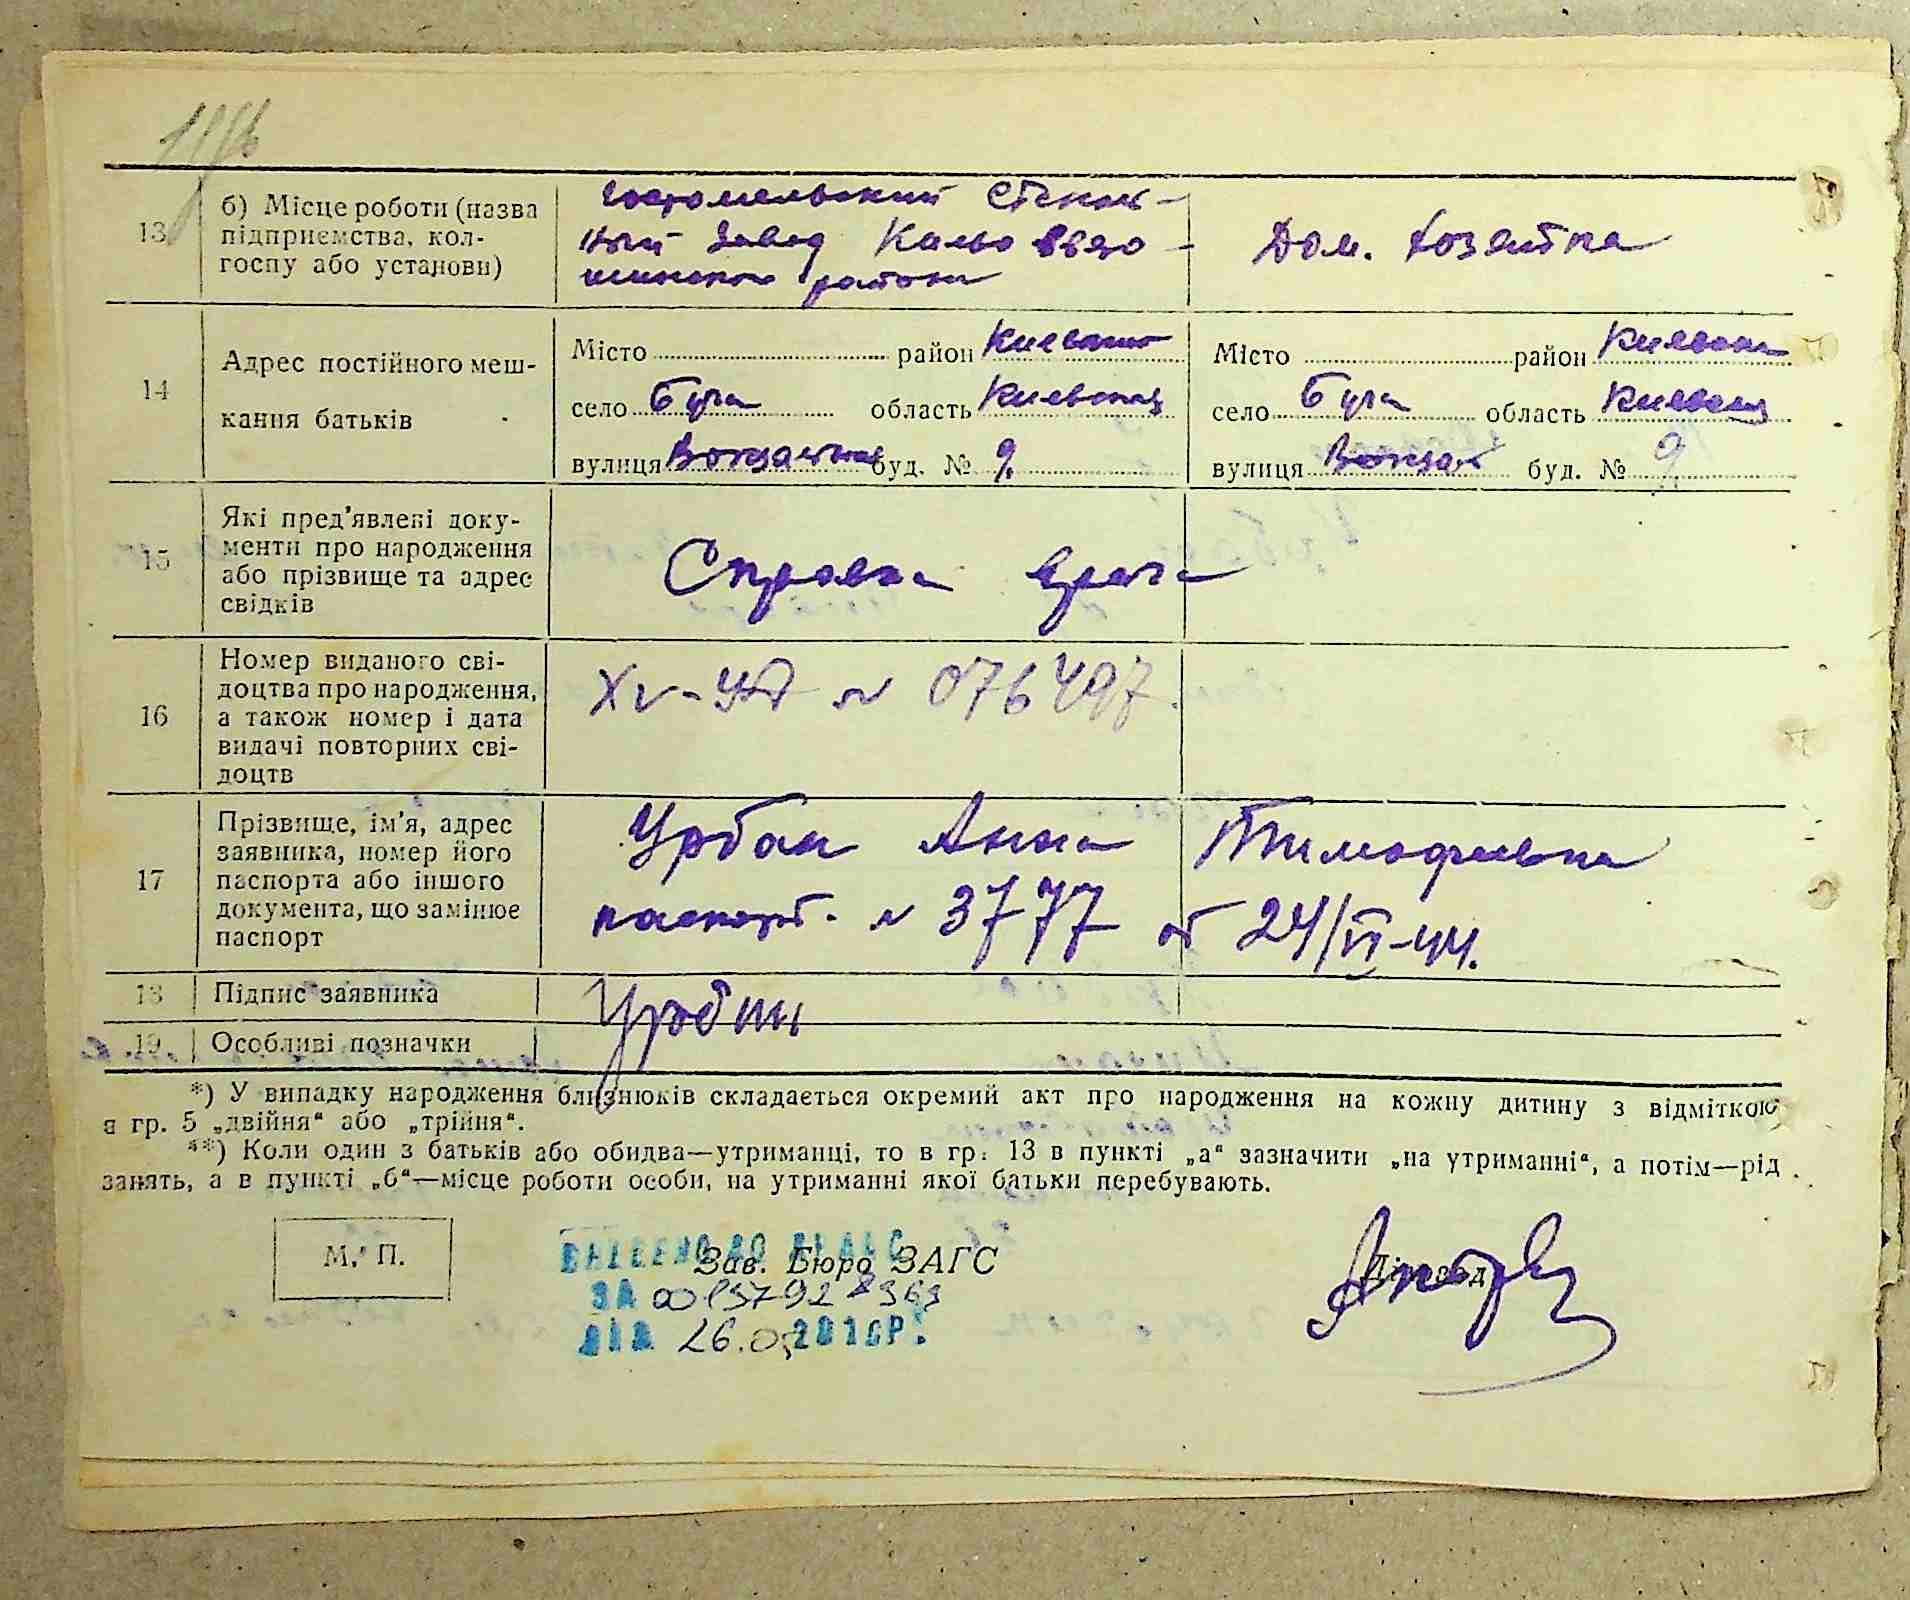 13 б) Місце роботи (назва підприємства, колгоспу або установи)
Гостомельский Стеколь-
ный завод Киево Свято-
шинского района
Дом. хозяйка
14 Адрес постійного мешкання батьків
Місто район Киевского
село Буча область Киевская
вулиця Вокзальная буд. № 9.
Місто район Киевского
село Буча область Киевская
вулиця Вокзал буд. № 9
15 Які пред'явлені документи про народження або прізвище та адрес свідків
Справка врача
16 Номер виданого свідоцтва про народження, а також номер і дата видачі повторних свідоцтв
№ 076497
17 Прізвище, ім'я, адрес заявника, номер його паспорта або іншого документа, що замінює паспорт
Урбан Анна Тимофеевна
паспорт. № 3777 от 24/VI-44.
18 Підпис заявника
Урбан
19 Особливі позначки
*) У випадку народження близнюків складається окремий акт про народження на кожну дитину з відміткою
в гр. 5 „двійня“ або „трійня“.
**) Коли один з батьків або обидва—утриманці, то в гр. 13 в пункті „а“ зазначити „на утриманні“, а потім—рід
занять, а в пункті „б“—місце роботи особи, на утриманні якої батьки перебувають.
М. П.
Зав. Бюро ЗАГС
Діловод
ВНЕСЕНО ДО ДРАЦС
ЗА 00157928363
ВІД 26.0 2016Р.